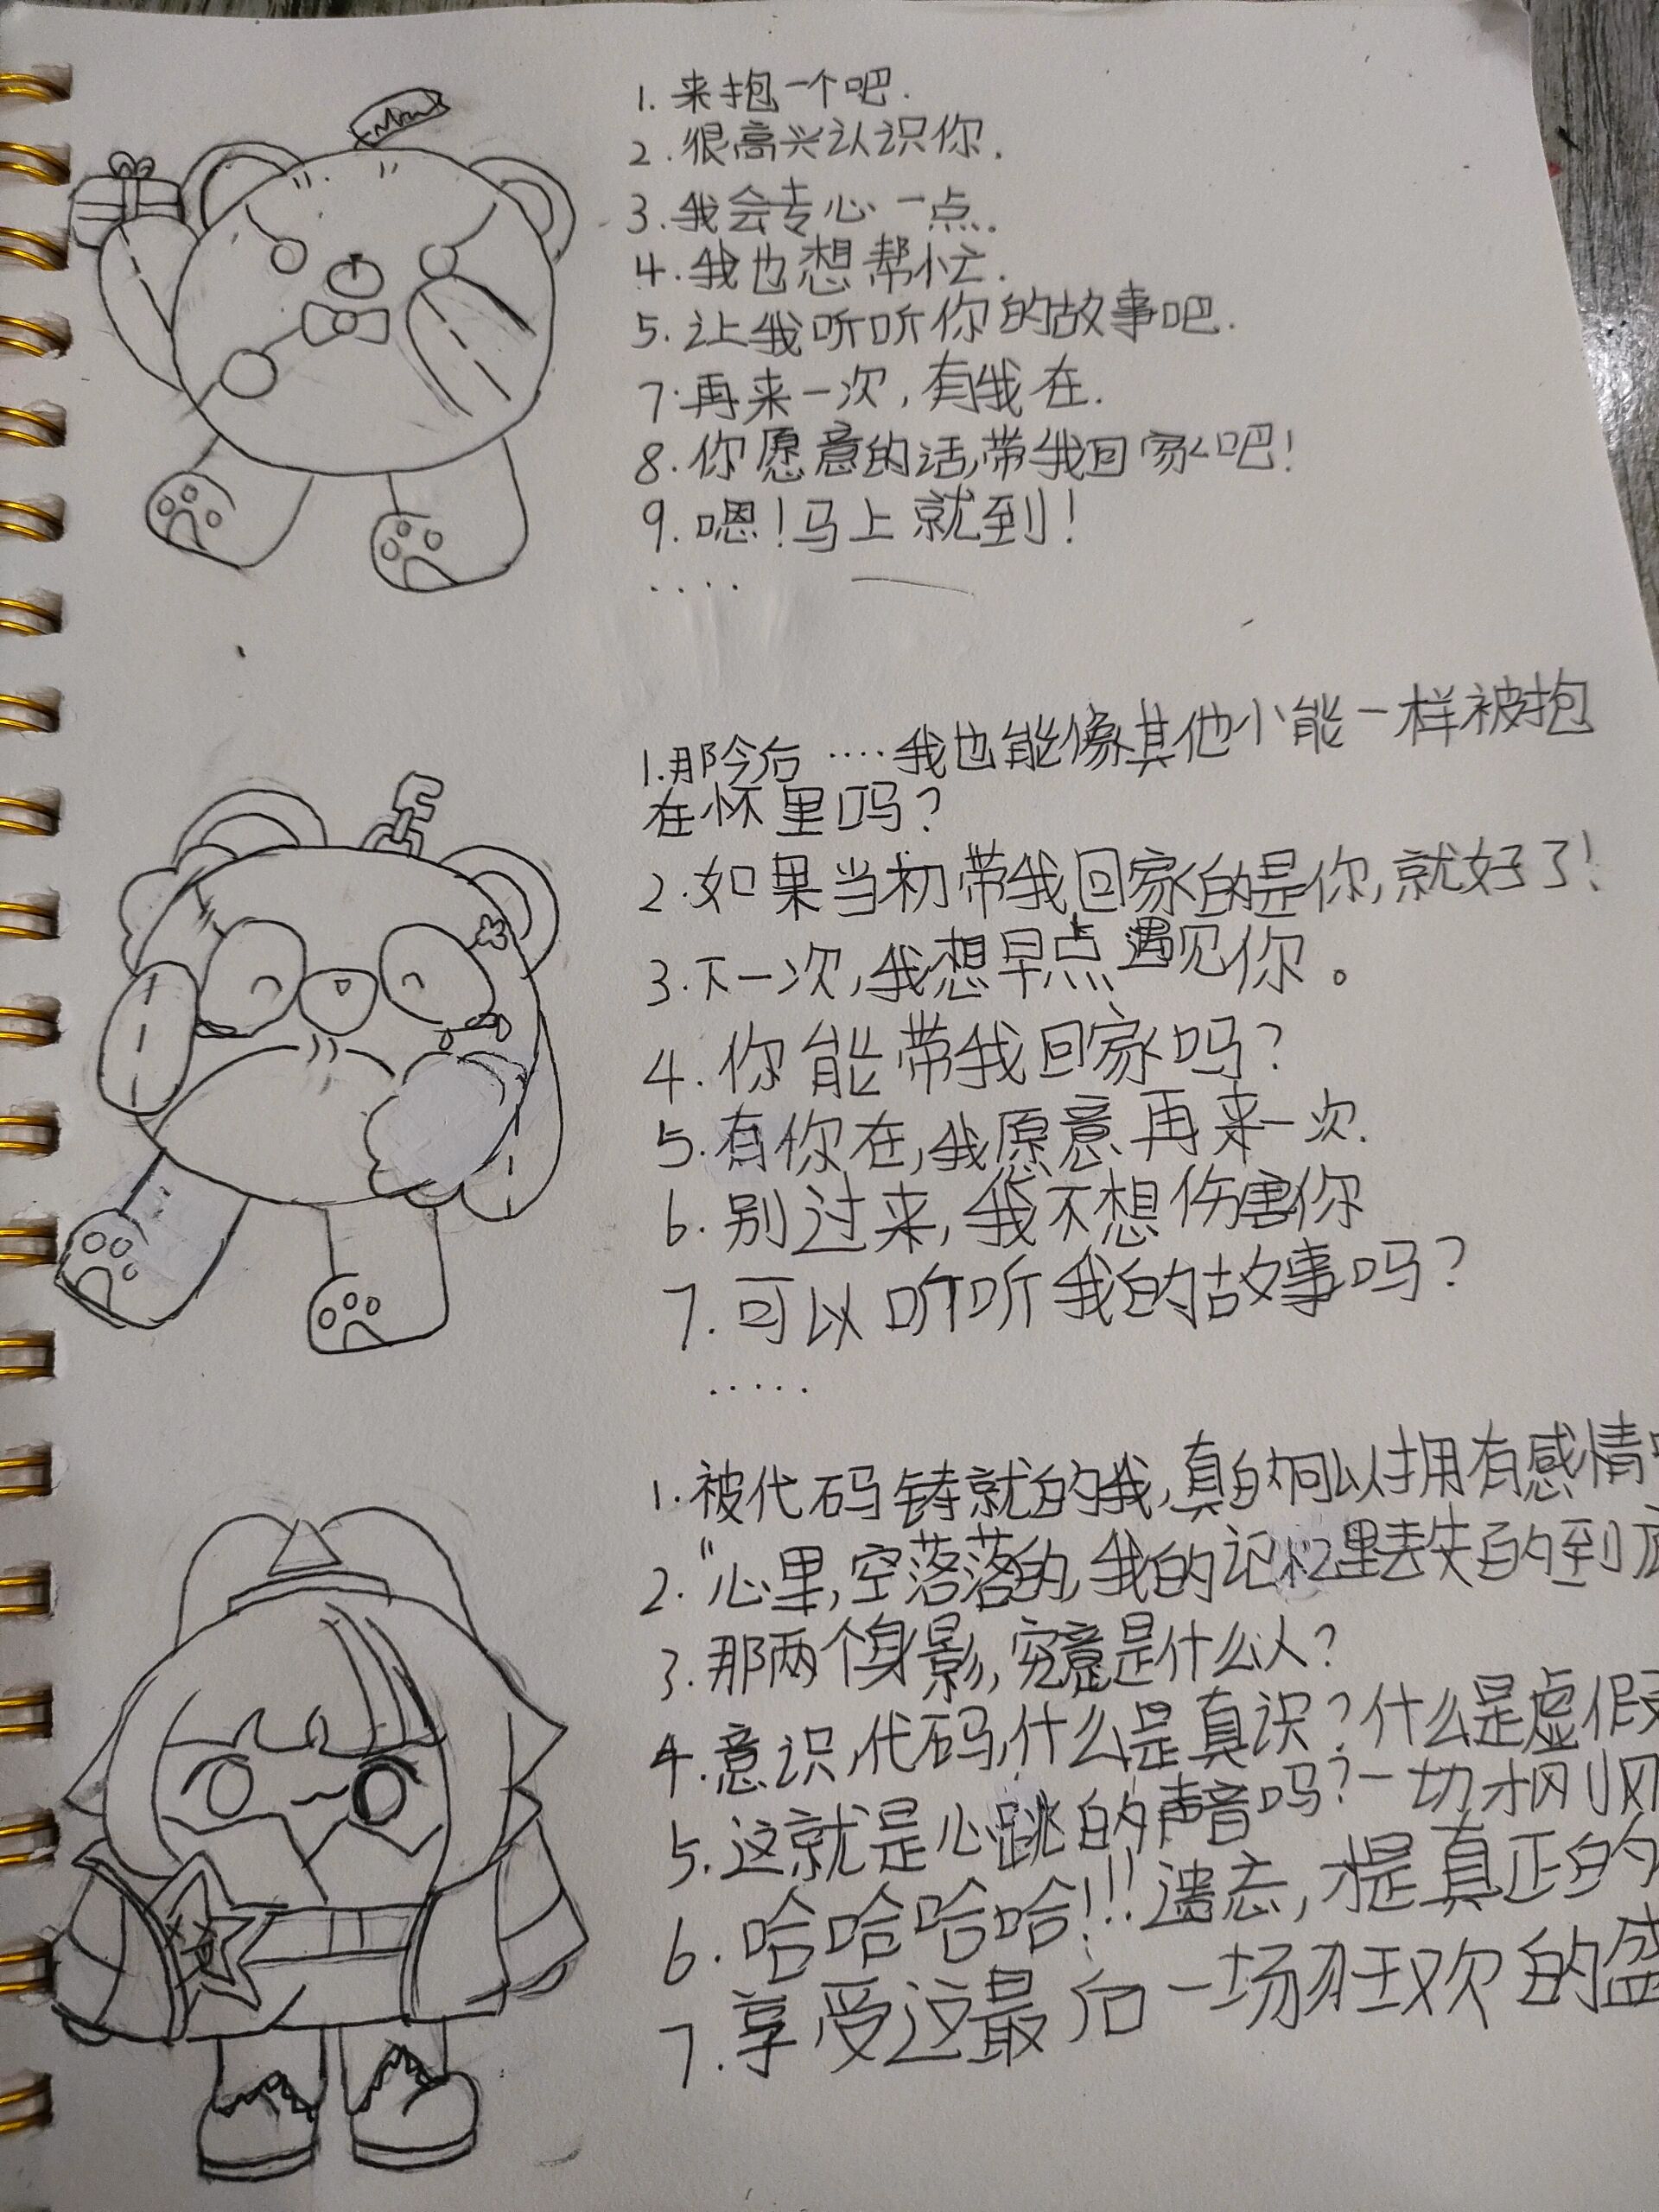 1. 来抱一个吧.
2. 很高兴认识你.
3. 我会专心一点.
4. 我也想帮忙.
5. 让我听听你的故事吧.
7. 再来一次, 有我在.
8. 你愿意的话,带我回家吧!
9. 嗯!马上就到!
....
1.那今后 ....我也能像其他小能一样被抱
在怀里吗?
2.如果当初带我回家的是你,就好了!
3.下一次,我想早点遇见你。
4. 你能带我回家吗?
5. 有你在,我愿意再来一次.
6. 别过来,我不想伤害你
7. 可以听听我的故事吗?
.....
1.被代码铸就的我,真的可以拥有感情
2. "心里,空落落的,我的记忆里丢失的到
3. 那两个身影,究竟是什么人?
4.意识,代码,什么是真识?什么是虚假
5.这就是心跳的声音吗?一切才刚刚
6. 哈哈哈哈!!!遗忘,才是真正的
7.享受这最后一场狂欢的盛